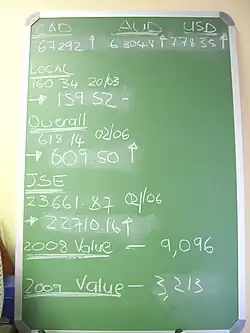 CAD AUD USD
67292 ↑ 63048 ↑ 77835 ↑
LOCAL
160 34 20/03
→ 159.52 -
Overall
618.14 02/06
→ 609.50 ↑
JSE
23661.87 02/06
→ 22710.16 ↑
2008 Value - 9,096
2009 Value - 3,213